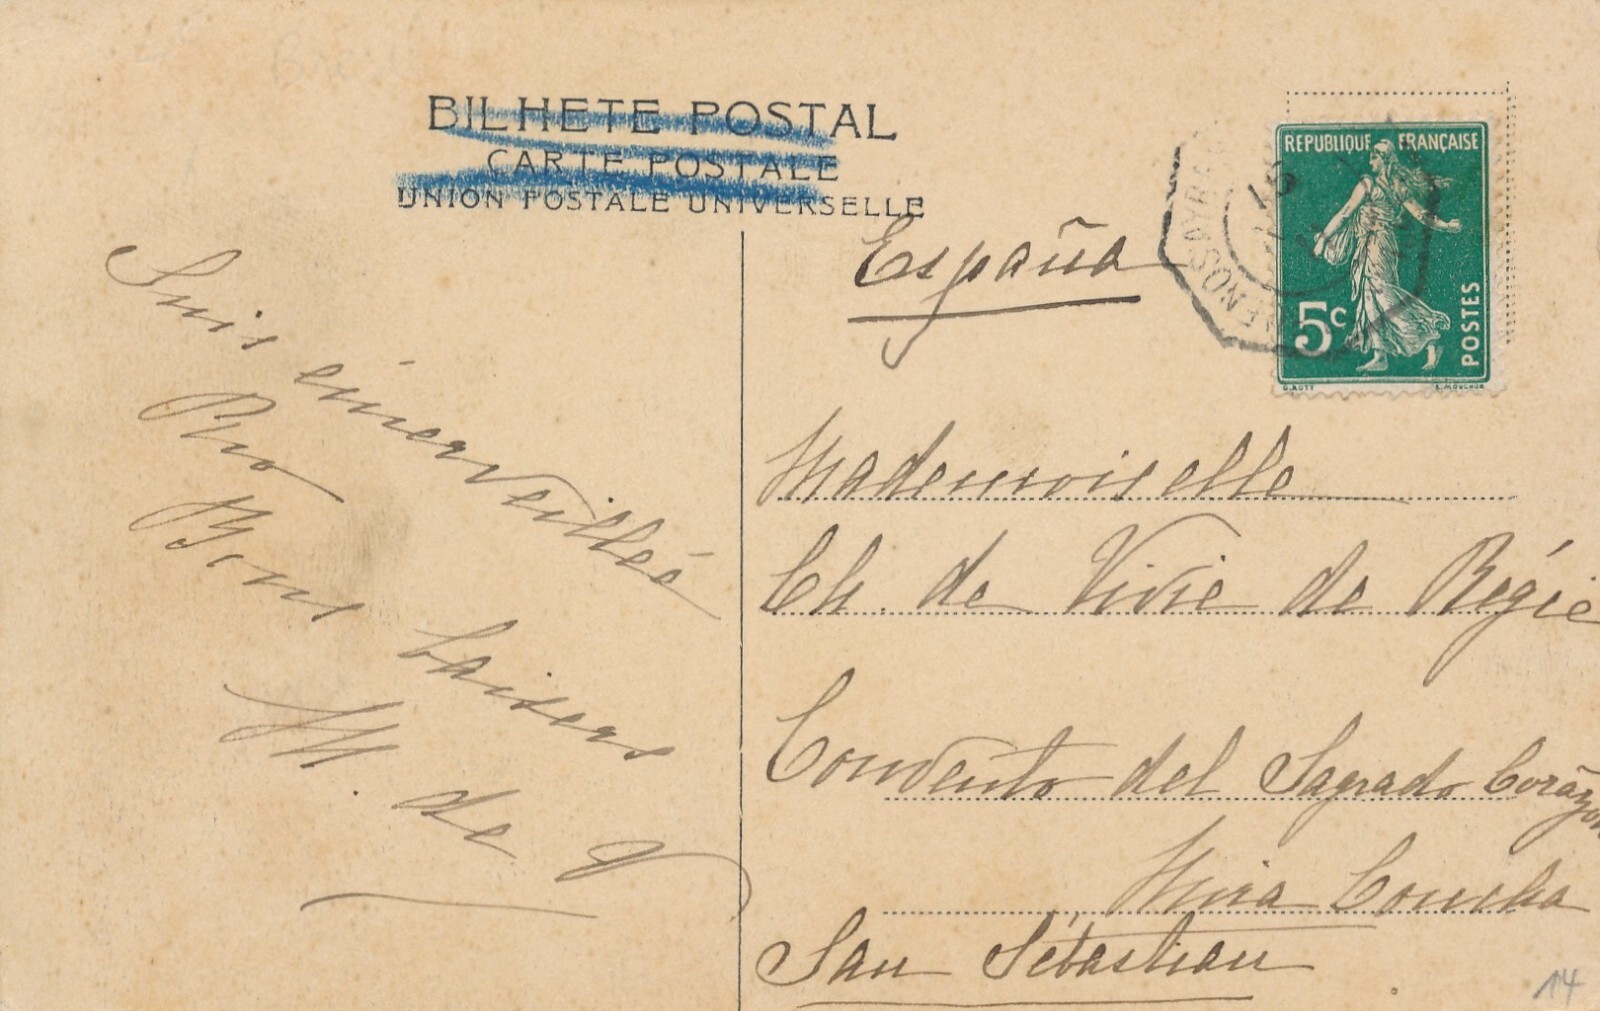 BILHETE POSTAL
CARTE POSTALE
UNION POSTALE UNIVERSELLE
REPUBLIQUE FRANÇAISE
5c
POSTES
O. ROTY
E. MOUCHON
España
Suis émerveillé
Rio
Bons baisers
M. de V
Mademoiselle
Ch. de Vivie de Régie
Convento del Sagrado Corazon
Mira Concha
San Sébastian
14